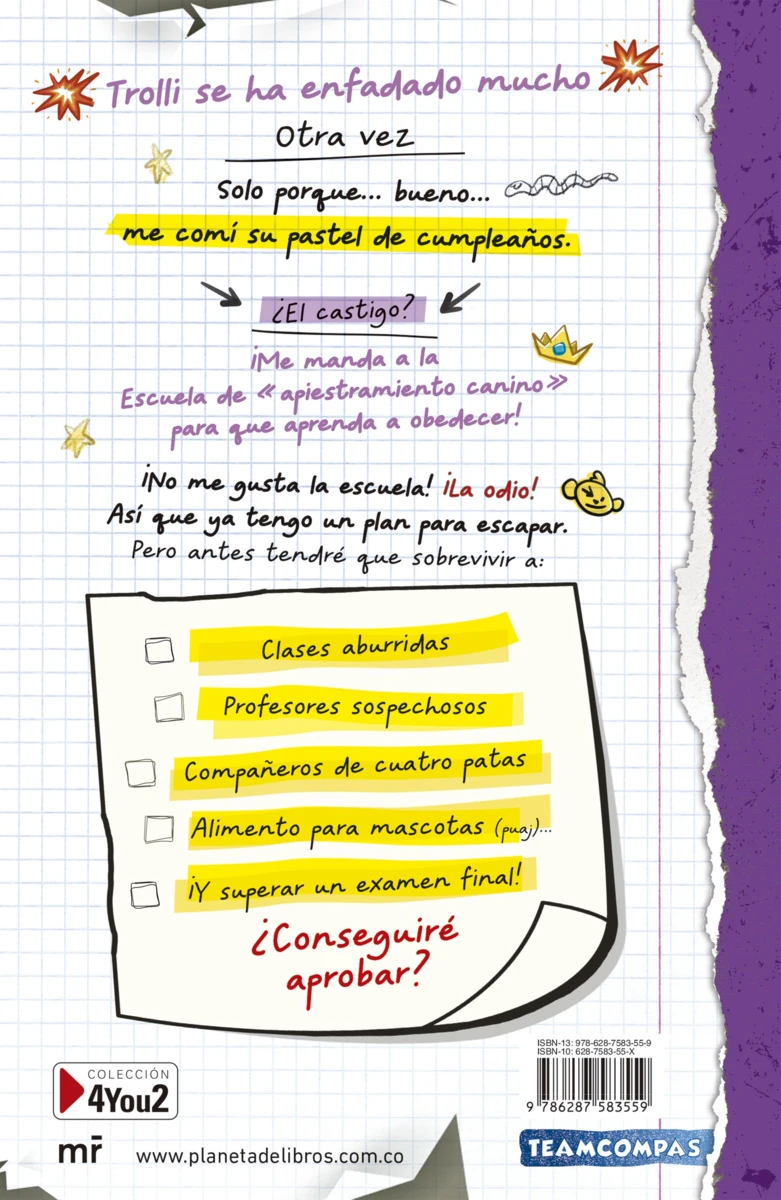 Trolli se ha enfadado mucho
Otra vez
Solo porque... bueno...
me comí su pastel de cumpleaños.
¿El castigo?
¡Me manda a la
Escuela de «apiestramiento canino»
para que aprenda a obedecer!
¡No me gusta la escuela! ¡La odio!
Así que ya tengo un plan para escapar.
Pero antes tendré que sobrevivir a:
Clases aburridas
Profesores sospechosos
Compañeros de cuatro patas
Alimento para mascotas (puaj)...
¡Y superar un examen final!
¿Conseguiré
aprobar?
ISBN-13: 978-628-7583-55-9
ISBN-10: 628-7583-55-X
9 786287 583559
COLECCIÓN
4You2
mr
www.planetadelibros.com.co
TEAMCOMPAS